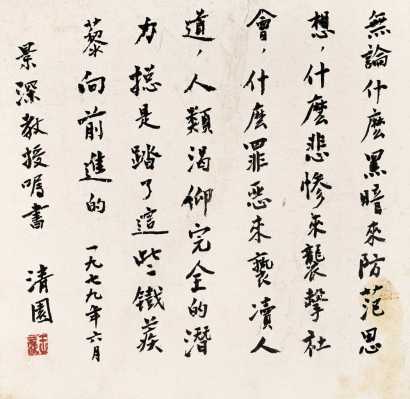 無論什麽黑暗來防范思
想，什麽悲慘來襲擊社
會，什麽罪惡來褻瀆人
道，人類渴仰完全的潛
力揔是踏了這些鐵蒺
藜向前進的
一九七九年六月
景深教授嘱書
清園